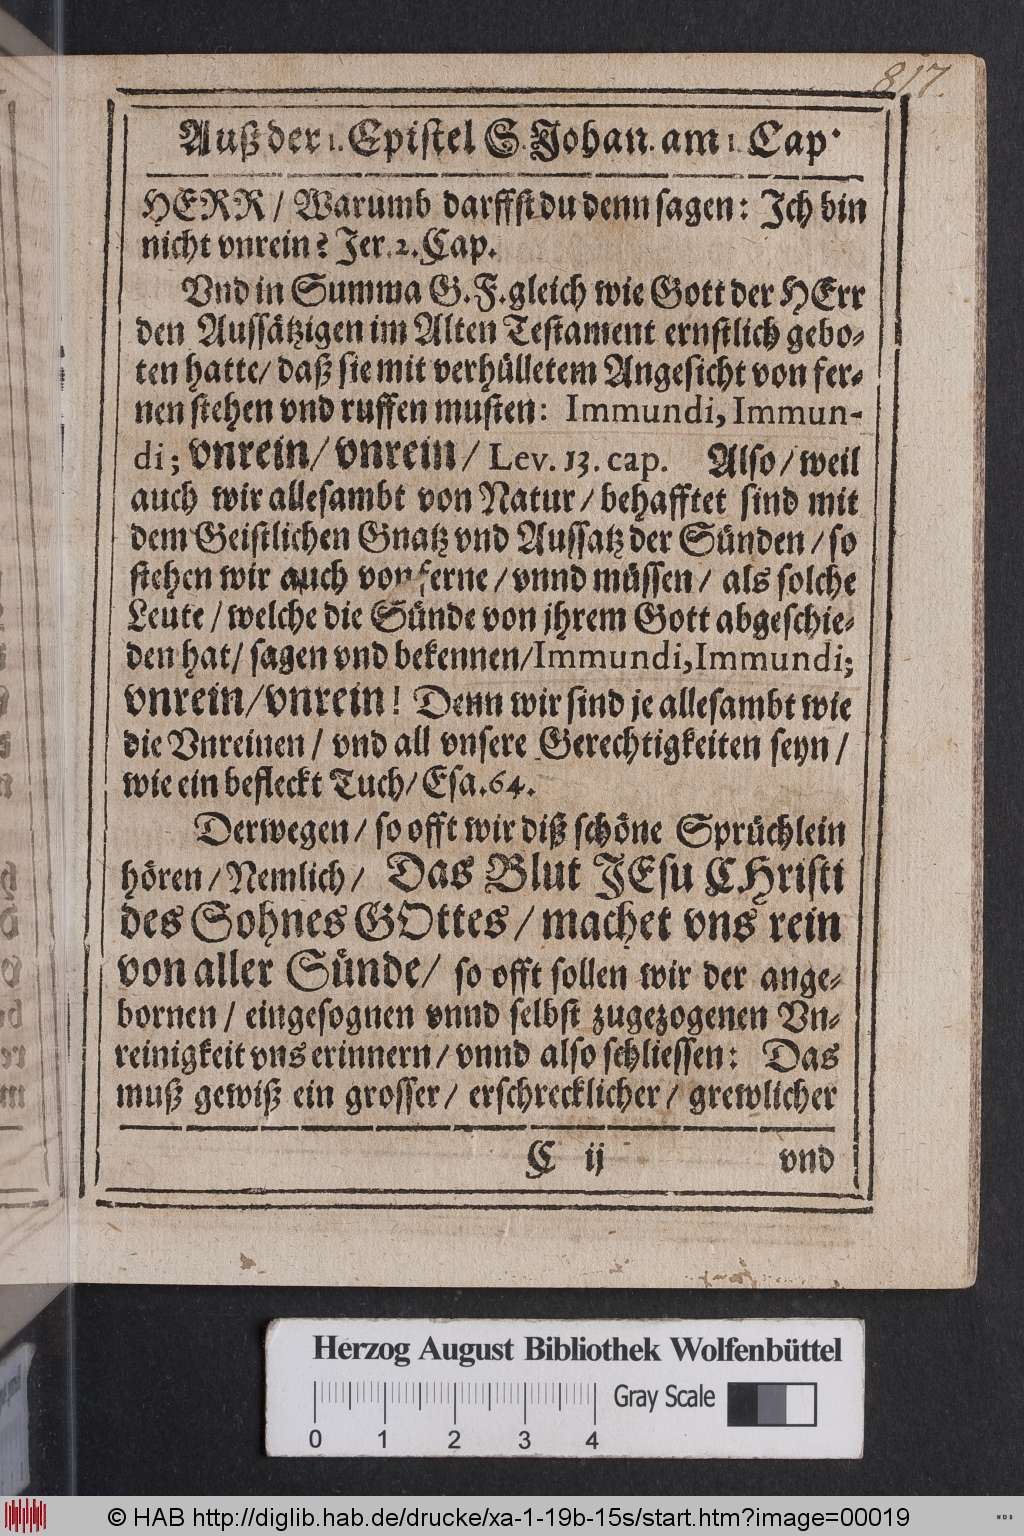 817.
Auß der 1. Epistel S. Johan. am 1. Cap.
HERR / Warumb darffst du denn sagen: Ich bin
nicht vnrein? Jer. 2. Cap.
Vnd in Summa G. F. gleich wie Gott der HErr
den Aussätzigen im Alten Testament ernstlich gebo-
ten hatte / daß sie mit verhülletem Angesicht von fer-
nen stehen vnd ruffen musten: Immundi, Immun-
di; vnrein / vnrein / Lev. 13. cap. Also / weil
auch wir allesambt von Natur / behafftet sind mit
dem Geistlichen Gnatz vnd Aussatz der Sünden / so
stehen wir auch von ferne / vnnd müssen / als solche
Leute / welche die Sünde von jhrem Gott abgeschie-
den hat / sagen vnd bekennen / Immundi, Immundi;
vnrein / vnrein! Denn wir sind je allesambt wie
die Vnreinen / vnd all vnsere Gerechtigkeiten seyn /
wie ein befleckt Tuch / Esa. 64.
Derwegen / so offt wir diß schöne Sprüchlein
hören / Nemlich / Das Blut JEsu CHristi
des Sohnes GOttes / machet vns rein
von aller Sünde / so offt sollen wir der ange-
bornen / eingesognen vnnd selbst zugezogenen Vn-
reinigkeit vns erinnern / vnnd also schliessen: Das
muß gewiß ein grosser / erschrecklicher / grewlicher
C ij vnd
Herzog August Bibliothek Wolfenbüttel
Gray Scale
0 1 2 3 4
© HAB http://diglib.hab.de/drucke/xa-1-19b-15s/start.htm?image=00019